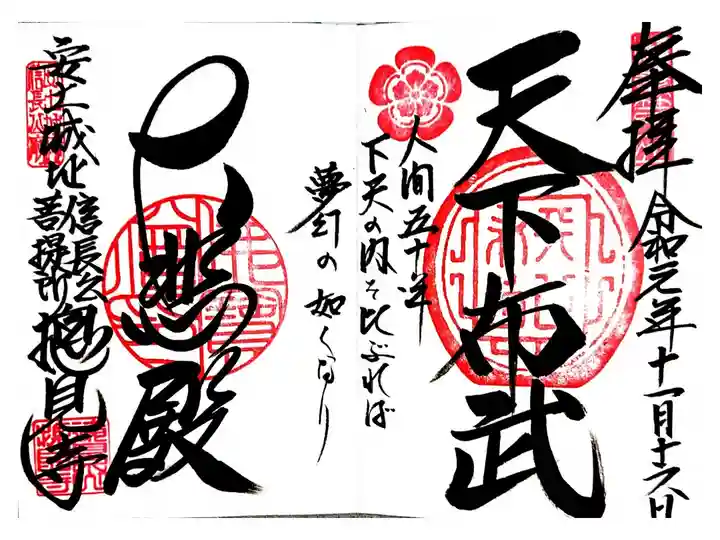 奉拝
令和元年十一月十六日
天下布武
人間五十年
下天の内をくらぶれば
夢幻の如くなり
殿
安土城址
信長公
菩提所
摠見寺